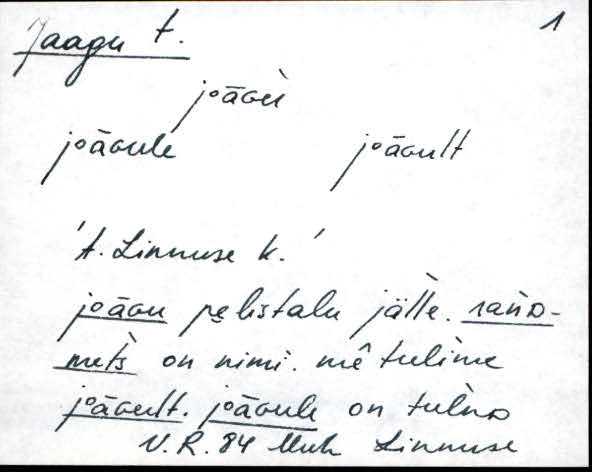 Jaagu t. 1
joāGù
joāGule joāGult
't. Linnuse k.'
joāGu pe̮listalu jälle. rań̀D-
metš on nimi. mê tulìme
joāGult. joāGule on tulnD
V.R. 84 Muh Linnuse